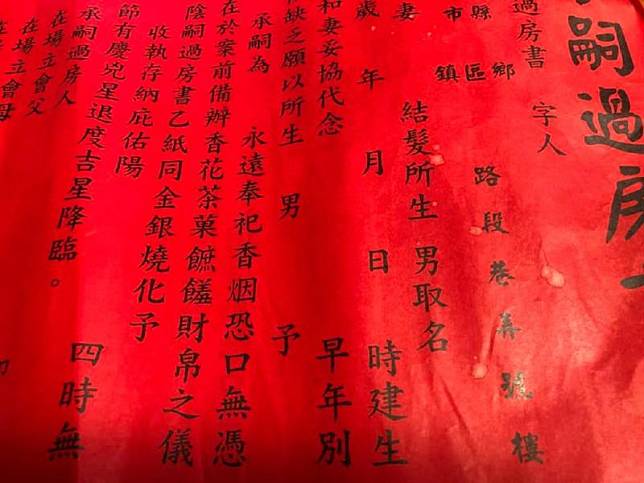 嗣過房
過房書 字人
市縣 鎮區鄉 路段巷弄號樓
妻 結髮所生 男取名
歲 年 月 日 時建生
和妻妥協代念 早年別
缺乏願以所生 男 予
承嗣為 永遠奉祀香烟恐口無憑
在於案前備辦香花茶菓饈財帛之儀
陰嗣過房書乙紙同金銀燒化予
收執存納庇佑陽
節有慶兇星退度吉星降臨。 四時無
承嗣過房人
在場立會父
在場立會母